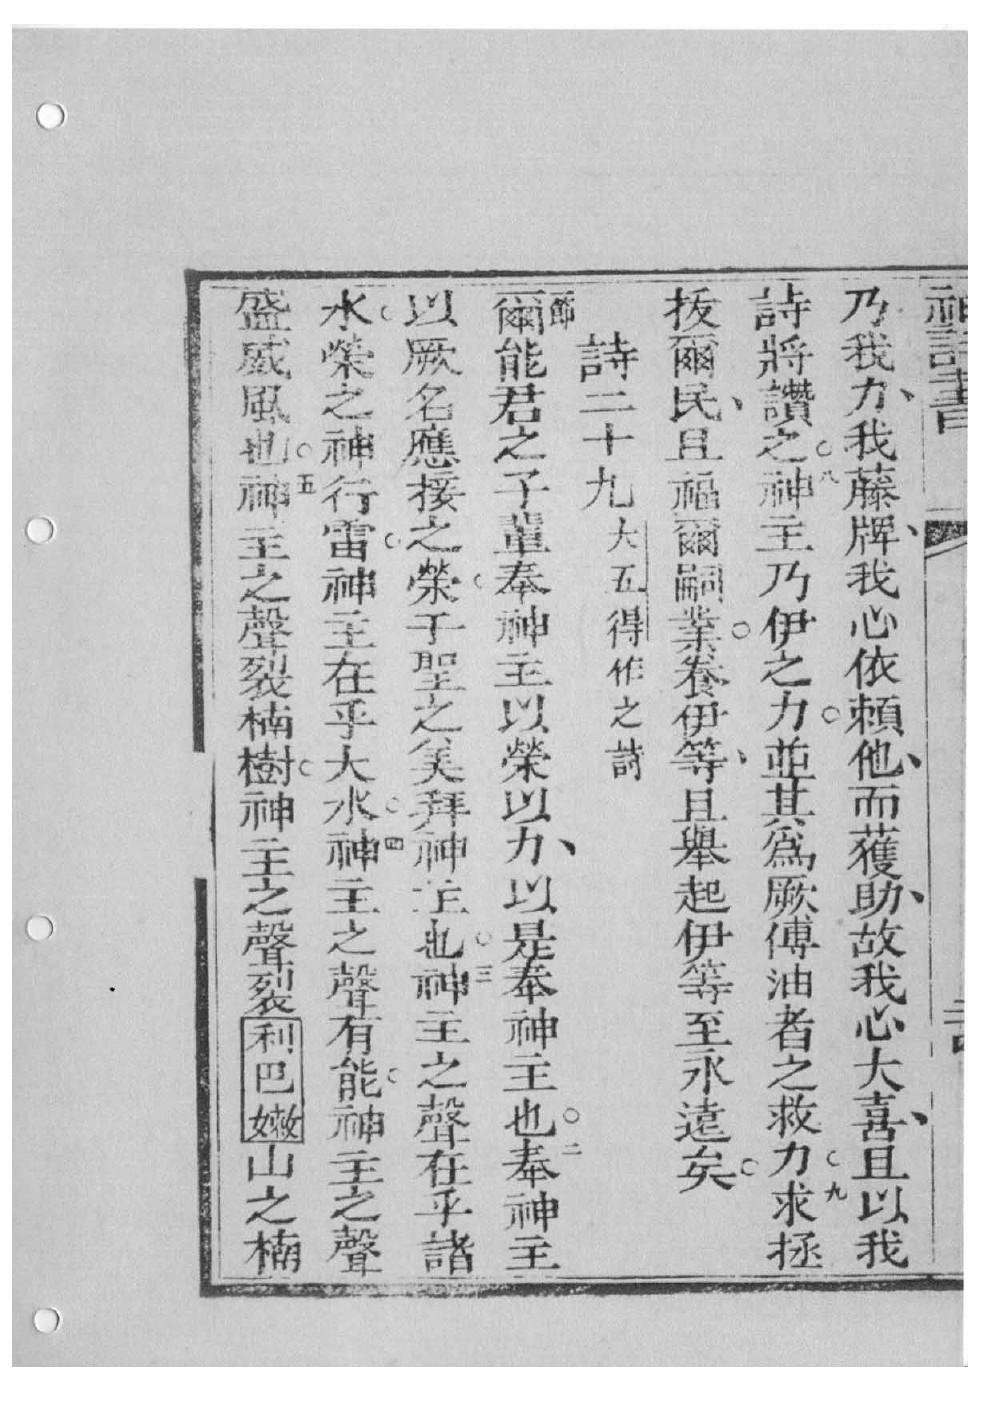 神詩書
乃我力、我藤牌、我心依賴他、而獲助、故我心大喜、且以我
詩將讚之。八神主乃伊之力。並其為厥傅油者之救力。九求拯
拔爾民、且福爾嗣業。養伊等、且舉起伊等至永遠矣。
詩二十九 大五得作之詩
節爾能君之子輩奉神主以榮以力、以是奉神主也。二奉神主
以厥名應接之榮。于聖之美拜神主也。三神主之聲在乎諸
水。榮之神行雷。神主在乎大水。四神主之聲有能。神主之聲
盛威風也。五神主之聲裂楠樹。神主之聲裂利巴嫩山之楠